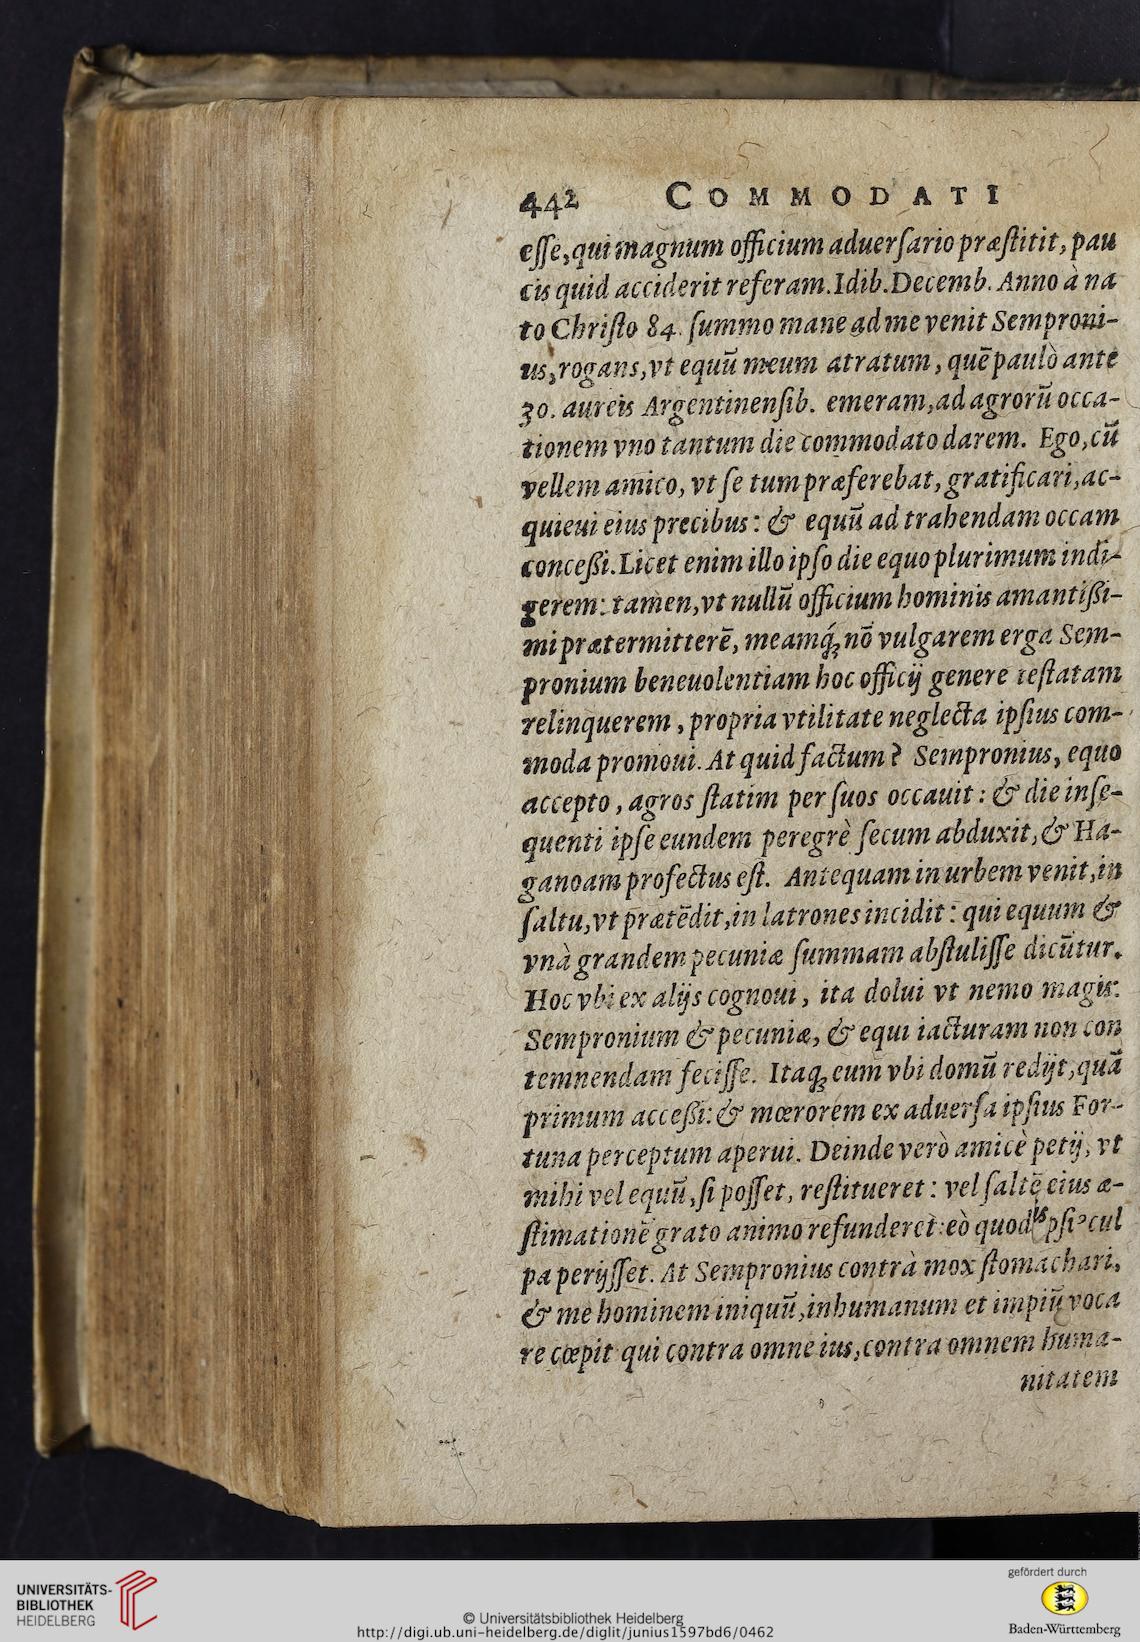 442 COMMODATI
eſſe, qui magnum officium aduerſario præſtitit, pau
cis quid acciderit referam. Idib. Decemb. Anno à na
to Chriſto 84. ſummo mane ad me venit Semproni-
us, rogans, vt equū meum atratum, quē paulò ante
30. aureis Argentinenſib. emeram, ad agrorū occa-
tionem vno tantum die commodato darem. Ego, cū
vellem amico, vt ſe tum præferebat, gratificari, ac-
quieui eius precibus: & equū ad trahendam occam
conceßi. Licet enim illo ipſo die equo plurimum indi-
gerem: tamen, vt nullū officium hominis amantißi-
mi prætermitterē, meamq́; nō vulgarem erga Sem-
pronium beneuolentiam hoc officij genere teſtatam
relinquerem, propria vtilitate neglecta ipſius com-
moda promoui. At quid factum? Sempronius, equo
accepto, agros ſtatim per ſuos occauit: & die inſe-
quenti ipſe eundem peregrè ſecum abduxit, & Ha-
ganoam profectus eſt. Antequam in urbem venit, in
ſaltu, vt prætēdit, in latrones incidit: qui equum &
vnà grandem pecuniæ ſummam abſtuliſſe dicūtur.
Hoc vbi ex alijs cognoui, ita dolui vt nemo magis:
Sempronium & pecuniæ, & equi iacturam non con
temnendam feciſſe. Itaq; eum vbi domū redijt, quā
primum acceßi: & mœrorem ex aduerſa ipſius For-
tuna perceptum aperui. Deinde verò amicè petij, vt
mihi vel equū, ſi poſſet, reſtitueret: vel ſaltē eius æ-
ſtimationē grato animo refunderet: eò quod ipſiꝰ cul
pa perijſſet. At Sempronius contrà mox ſtomachari,
& me hominem iniquū, inhumanum et impiū voca
re cœpit qui contra omne ius, contra omnem huma-
nitatem
UNIVERSITÄTS-
BIBLIOTHEK
HEIDELBERG
© Universitätsbibliothek Heidelberg
http://digi.ub.uni-heidelberg.de/diglit/junius1597bd6/0462
gefördert durch
Baden-Württemberg